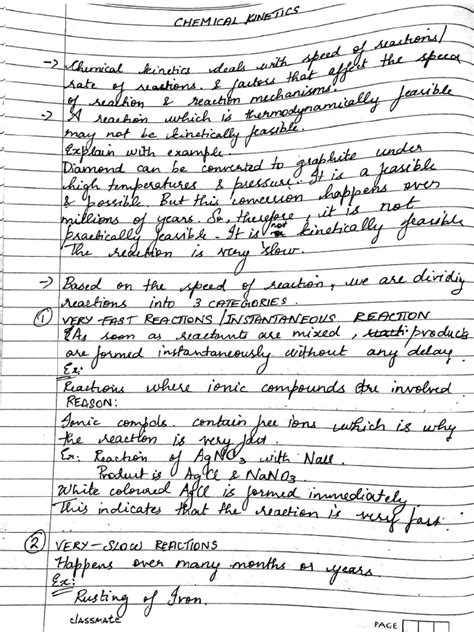 CHEMICAL KINETICS
-> Chemical kinetics deals with speed of reactions/
rate of reactions. & factors that affect the speed
of reaction & reaction mechanisms.
-> A reaction which is thermodynamically feasible
may not be kinetically feasible.
Explain with example.
Diamond can be converted to graphite under
high temperatures & pressure. It is a feasible
& possible. But this conversion happens over
millions of years. So, therefore, it is not
practically feasible. It is not kinetically feasible
The reaction is very slow.
-> Based on the speed of reaction, we are dividing
reactions into 3 CATEGORIES.
① VERY-FAST REACTIONS/INSTANTANEOUS REACTION
As soon as reactants are mixed, products
are formed instantaneously without any delay.
Ex:
Reactions where ionic compounds are involved
REASON:
Ionic compds. contain free ions which is why
the reaction is very fast.
Ex: Reaction of AgNO3 with NaCl.
Product is AgCl & NaNO3
White coloured AgCl is formed immediately
This indicates that the reaction is very fast.
② VERY-SLOW REACTIONS
Happens over many months or years.
Ex:
Rusting of Iron.
classmate
PAGE